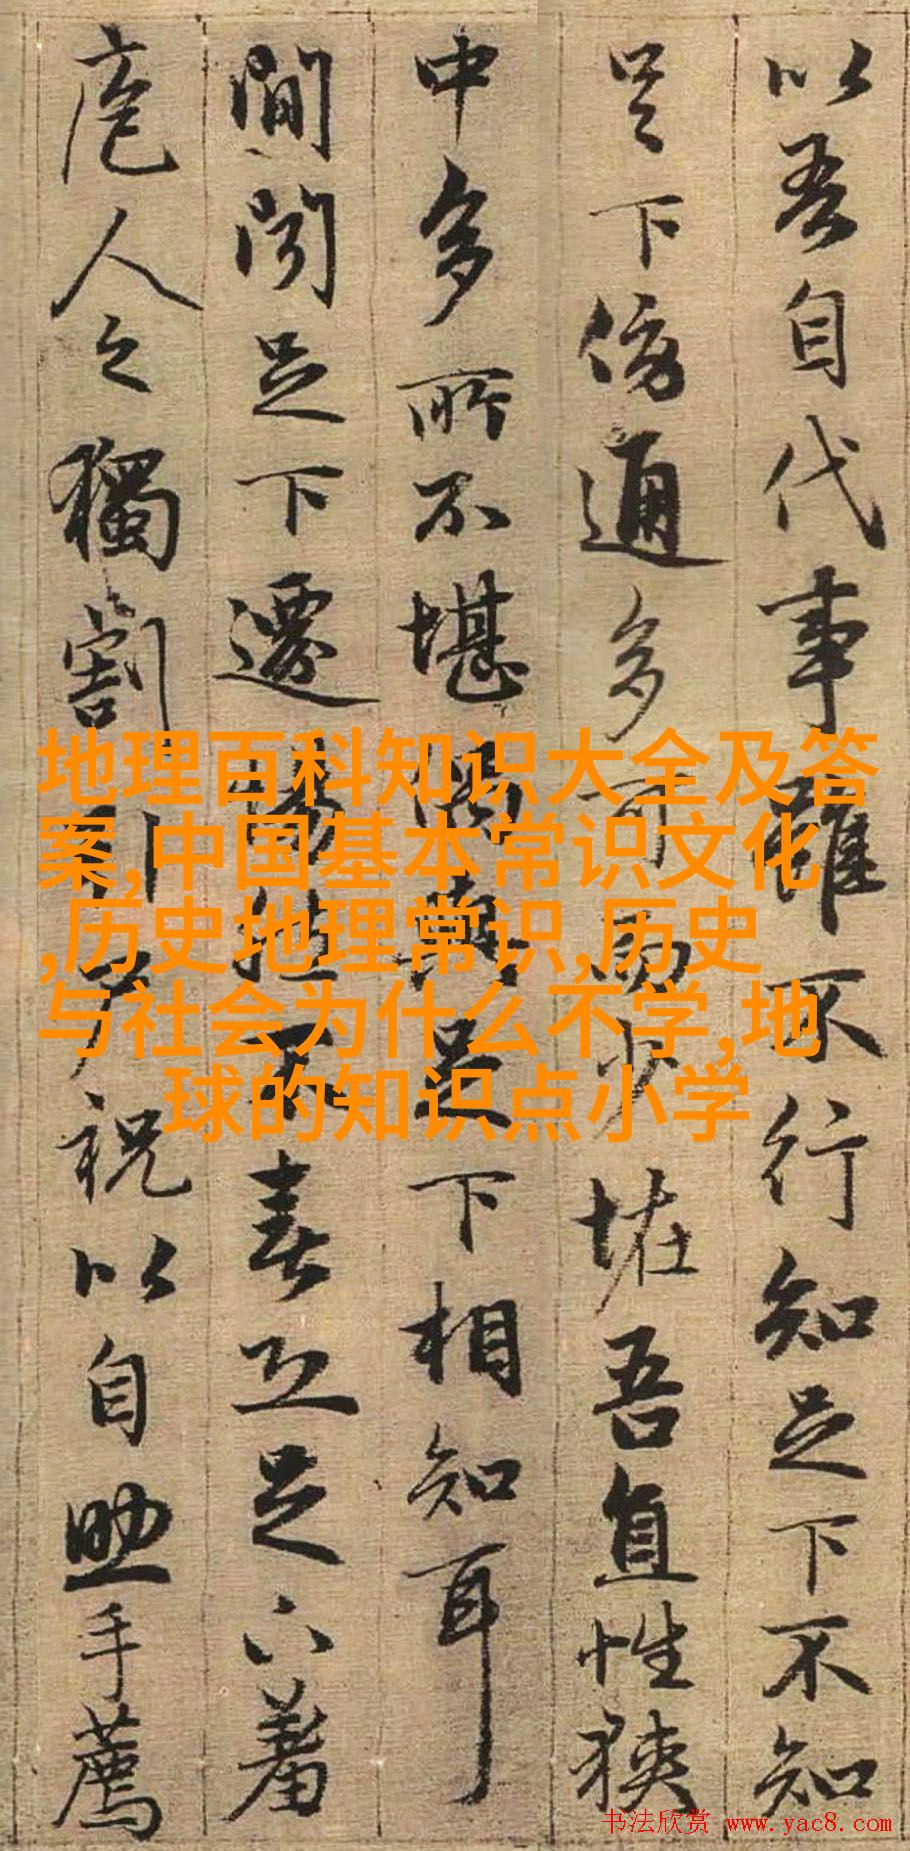 以吾自代事雖不行知足下不知
足下傍通多可而少恠吾直性狹
中多所不堪偶與足下相知耳
間聞足下遷惕然不喜恐足下羞
庖人之獨割引尸祝以自助手薦
地理百科知识大全及答
案,中国基本常识文化
,历史地理常识,历史
与社会为什么不学,地
球的知识点小学
书法欣赏 www.yac8.com